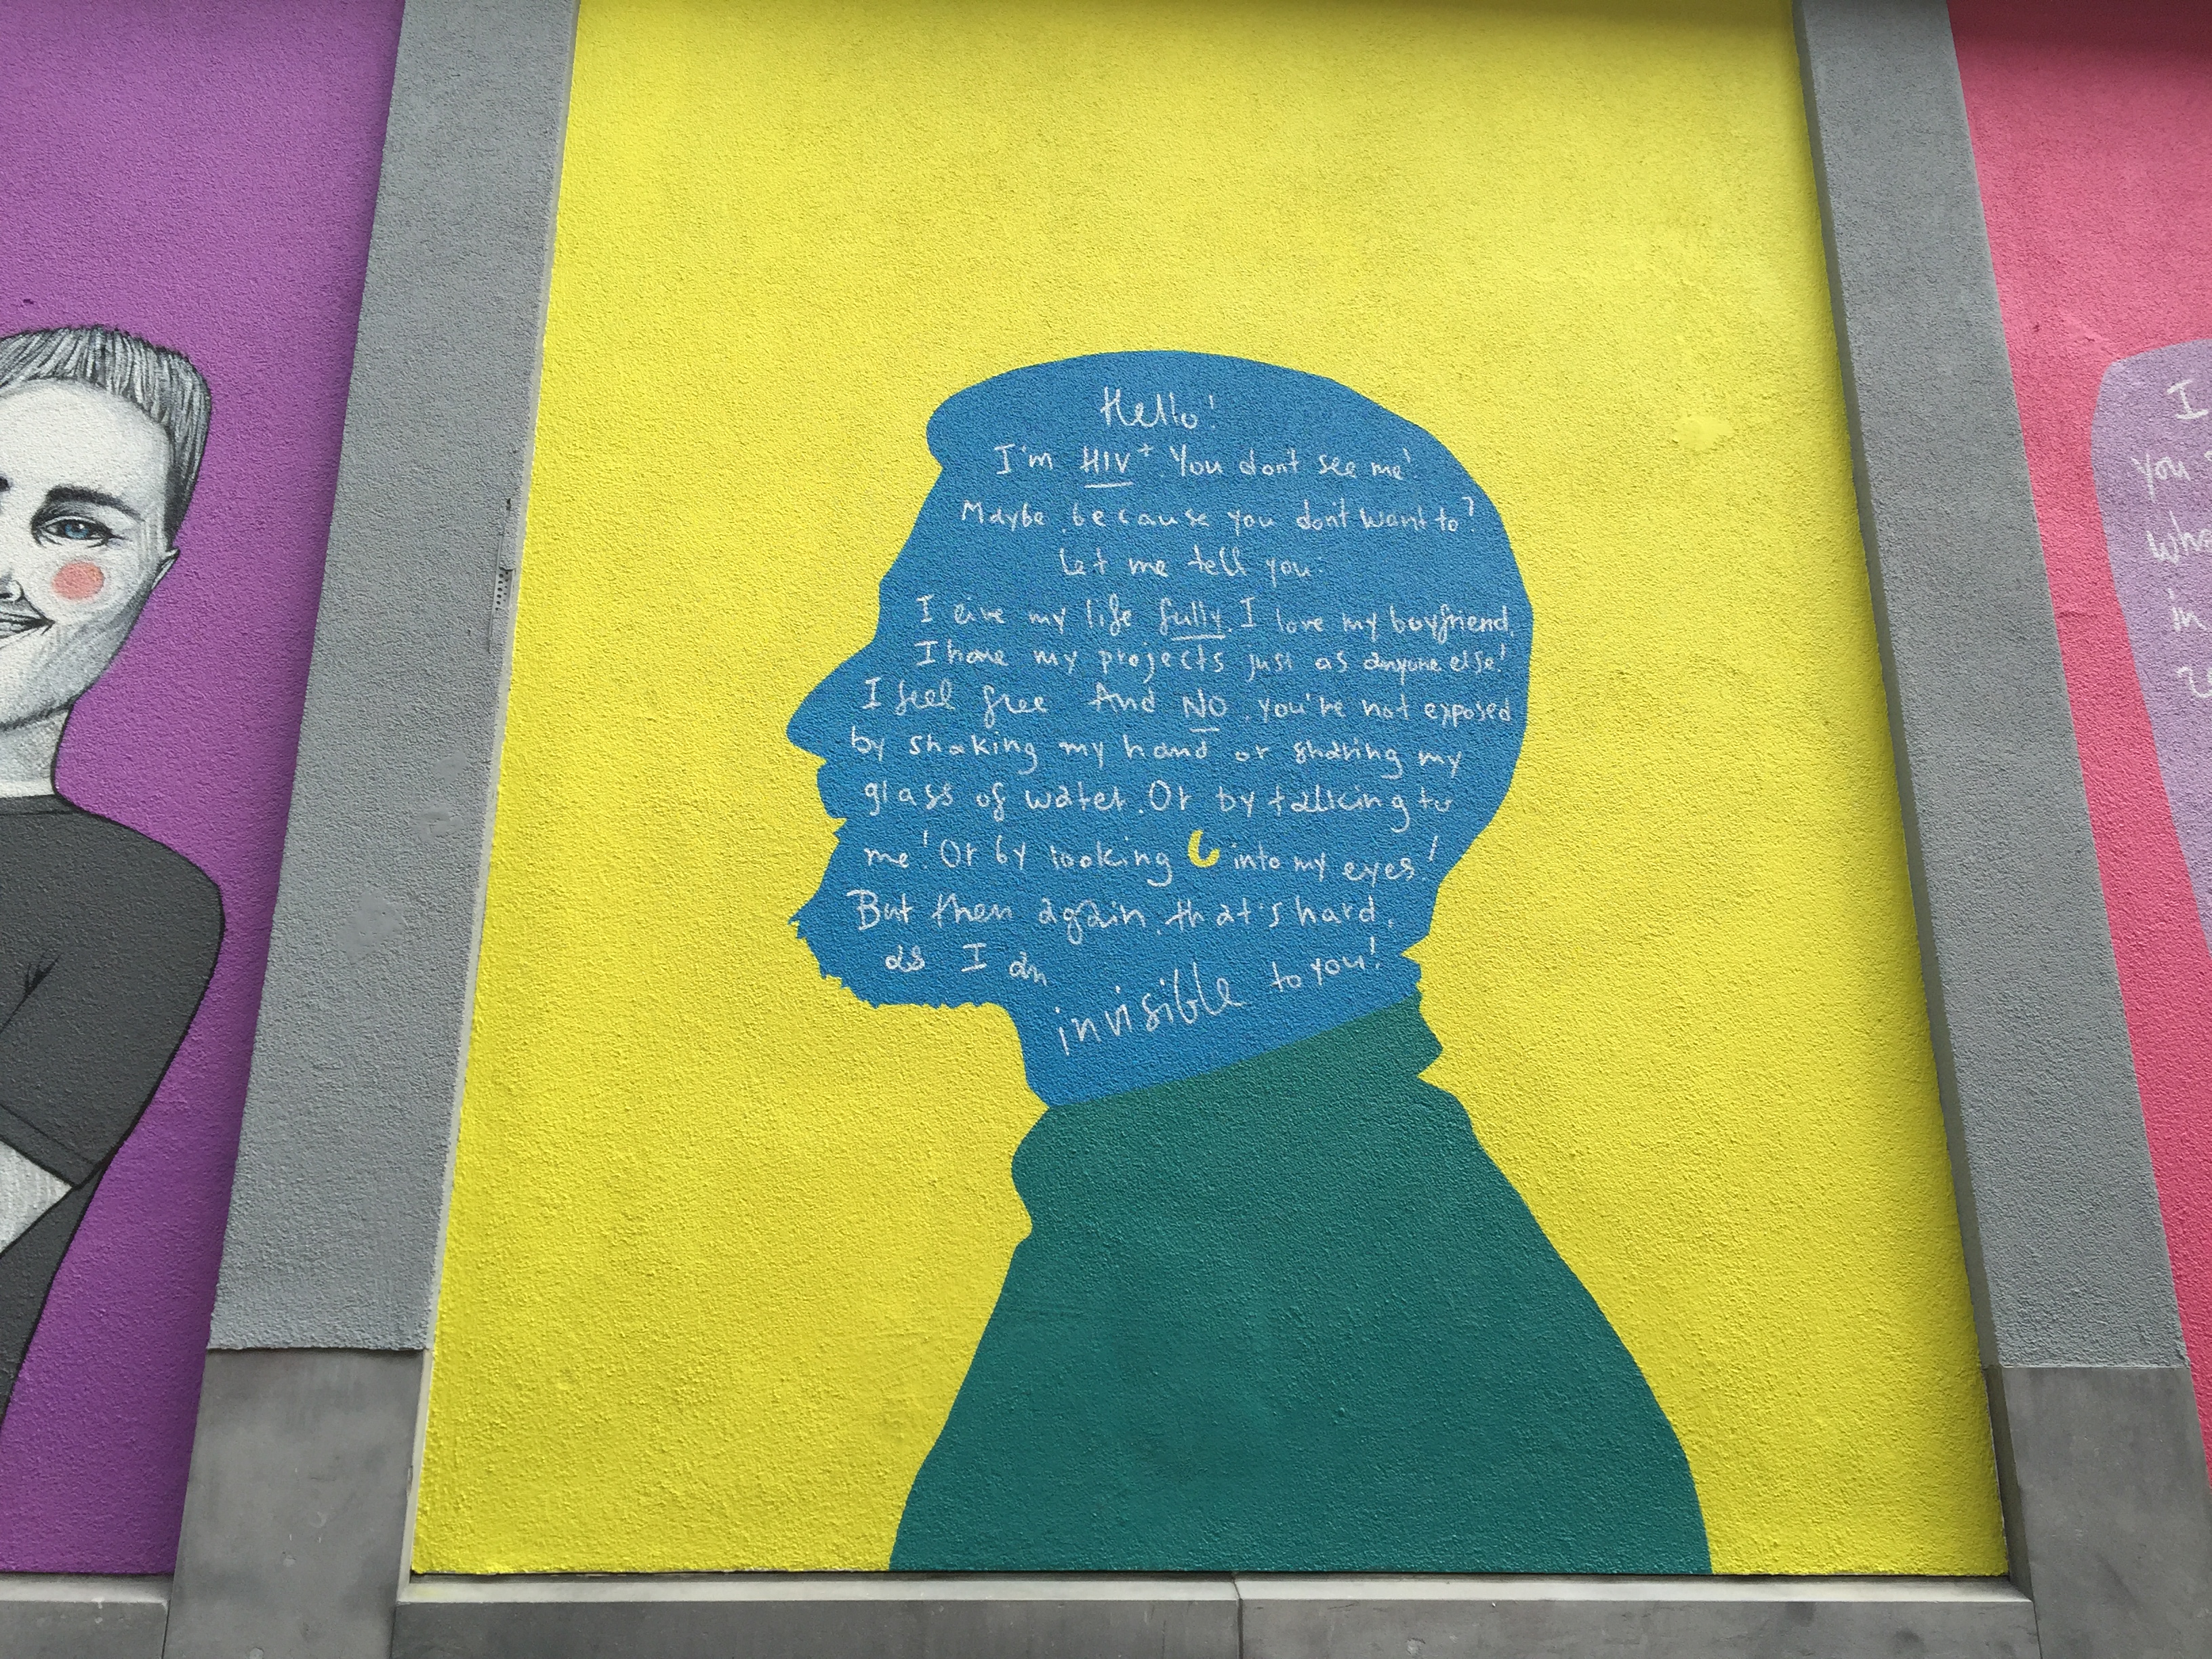 Hello!
I'm HIV+. You don't see me!
Maybe because you don't want to?
Let me tell you:
I live my life fully. I love my boyfriend.
I have my projects just as anyone else!
I feel free And NO, you're not exposed
by shaking my hand or sharing my
glass of water. Or by talking to
me! Or by looking into my eyes!
But then again, that's hard,
as I am
invisible to you!
I
you
wha
in